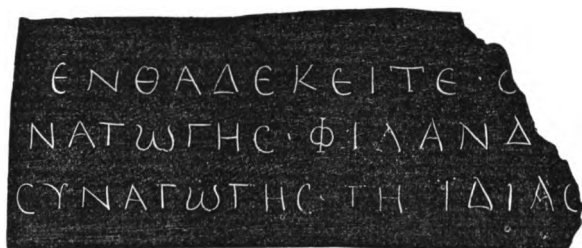 ΕΝΘΑΔΕΚΕΙΤΕ·C
ΝΑΓωΓΗC·ΦΙΛΑΝΔ
CΥΝΑΓωΓΗC·ΤΗ ΙΔΙΑC